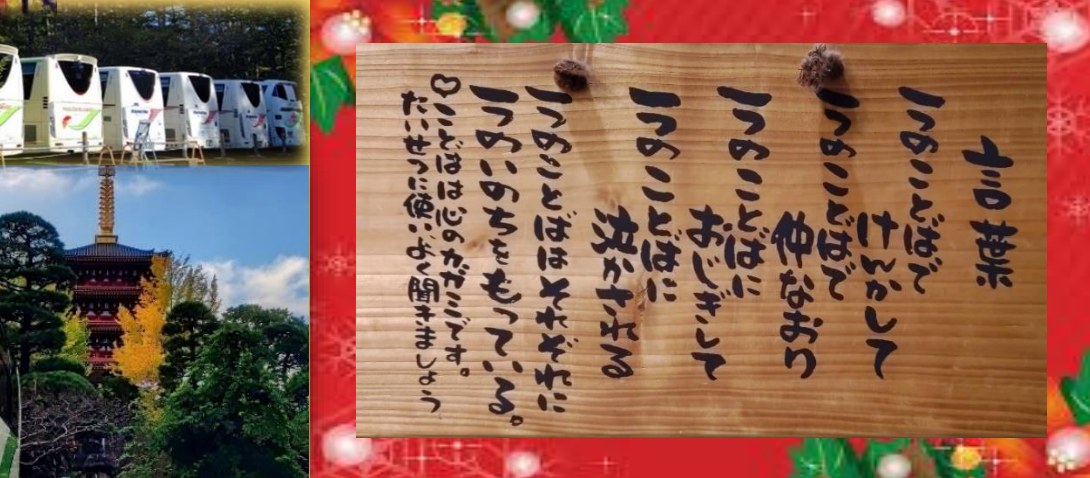 言葉
一つのことばで
けんかして
一つのことばで
仲なおり
一つのことばに
おじぎして
一つのことばに
泣かされる
一つのことばはそれぞれに
一つのいのちをもっている。
♡ことばは心のかがみです。
たいせつに使いよく聞きましょう